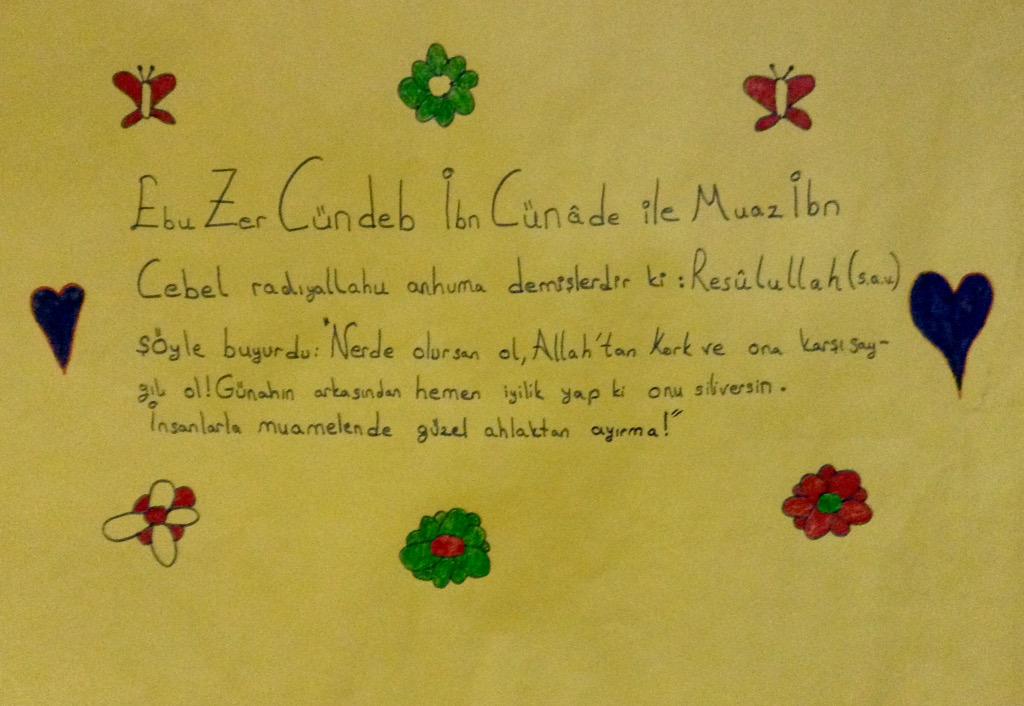 Ebu Zer Cündeb İbn Cünâde ile Muaz İbn
Cebel radıyallahu anhuma demişlerdir ki : Resûlullah (s.a.v)
şöyle buyurdu: "Nerde olursan ol, Allah'tan Kork ve ona karşı say-
gılı ol! Günahın arkasından hemen iyilik yap ki onu siliversin.
İnsanlarla muamelende güzel ahlaktan ayırma!"